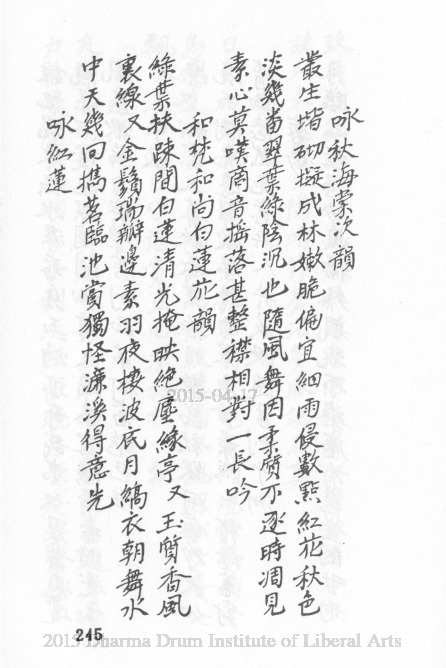 咏秋海棠次韻
叢生堦砌擬成林嫩脆偏宜細雨侵數點紅花秋色
淡幾畨翠葉綠陰沉也隨風舞因柔質不逐時凋見
素心莫嘆商音搖落甚整襟相對一長吟
和梵和尚白蓮花韻
綠葉扶踈間白蓮清光掩映絕塵緣亭又玉質香風
裏線又金鬚瑞瓣邊素羽夜棲波底月縞衣朝舞水
中天幾回擕茗臨池賞獨怪濂溪得意先
咏紅蓮
2015-04-17
245
2015 Dharma Drum Institute of Liberal Arts